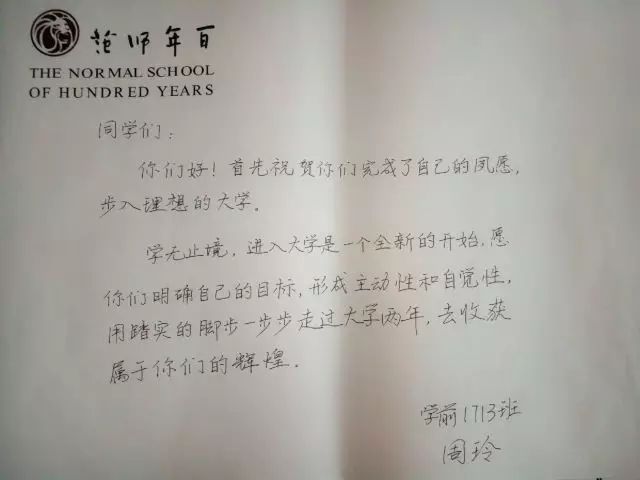 百年师范
THE NORMAL SCHOOL
OF HUNDRED YEARS
同学们：
你们好！首先祝贺你们完成了自己的凤愿，
步入理想的大学。
学无止境，进入大学是一个全新的开始，愿
你们明确自己的目标，形成主动性和自觉性，
用踏实的脚步一步步走过大学两年，去收获
属于你们的辉煌。
学前1713班
周玲